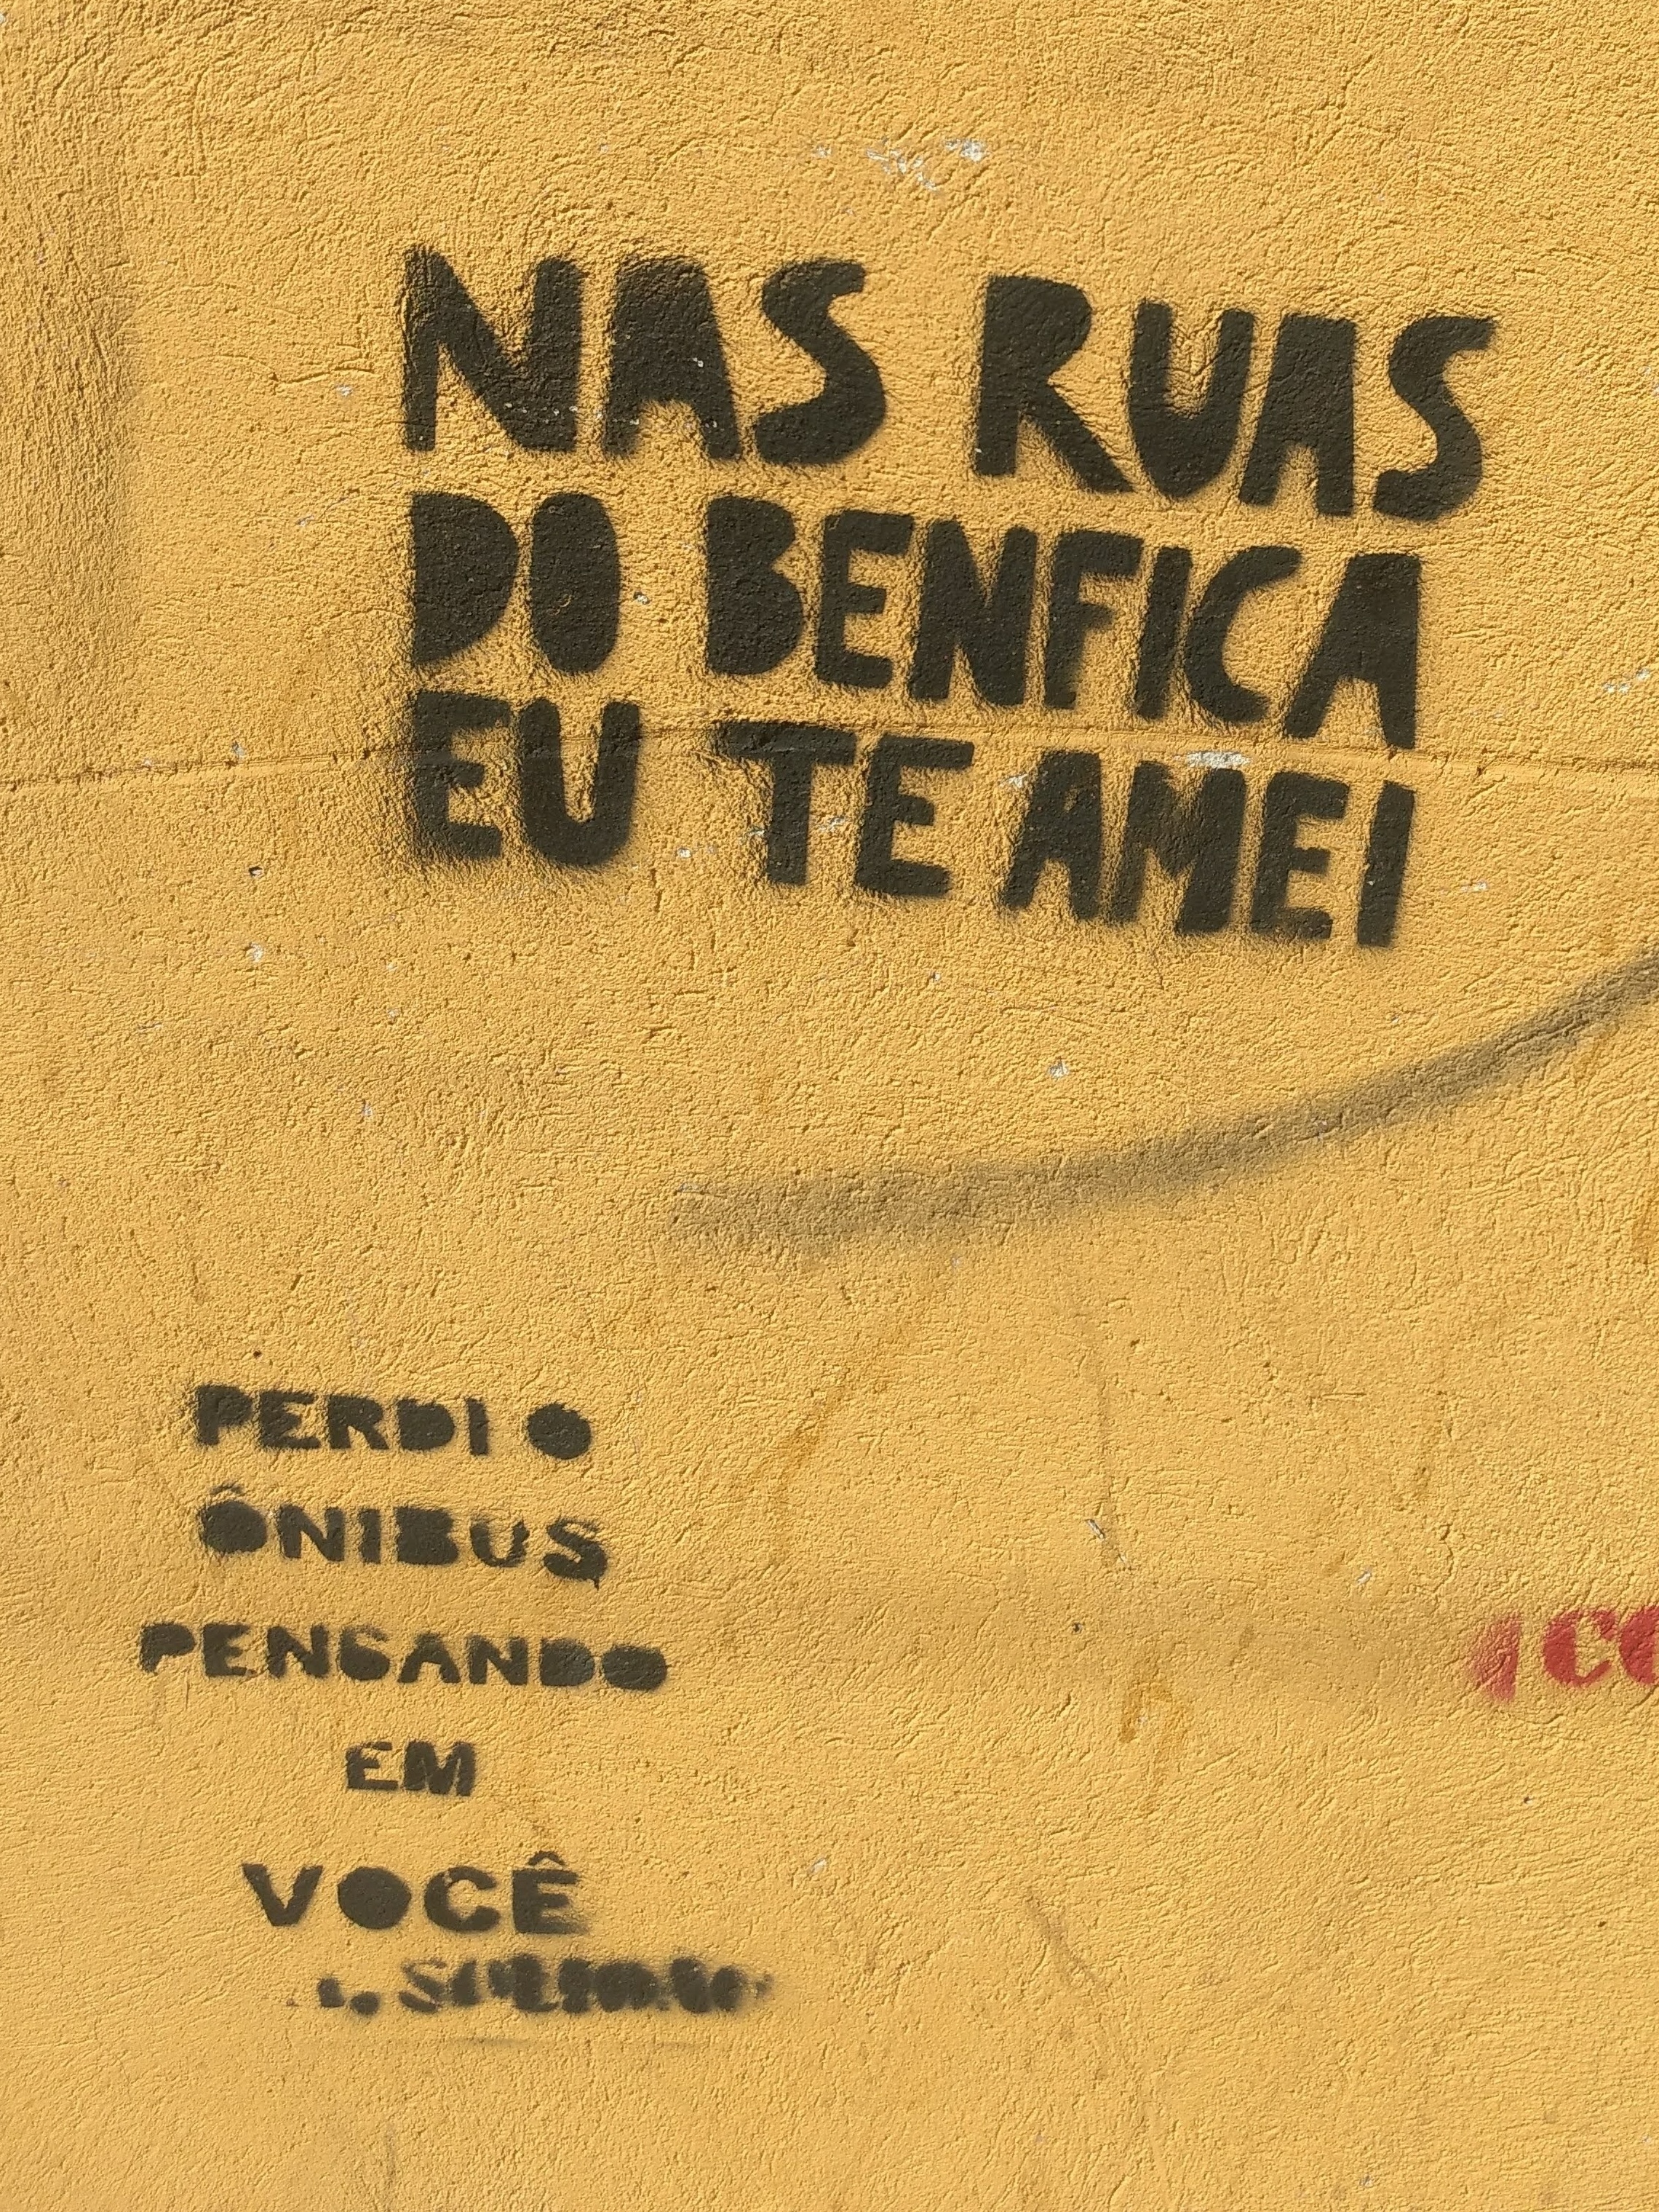 NAS RUAS
DO BENFICA
EU TE AMEI
PERDI O
ÔNIBUS
PENSANDO
EM
VOCÊ